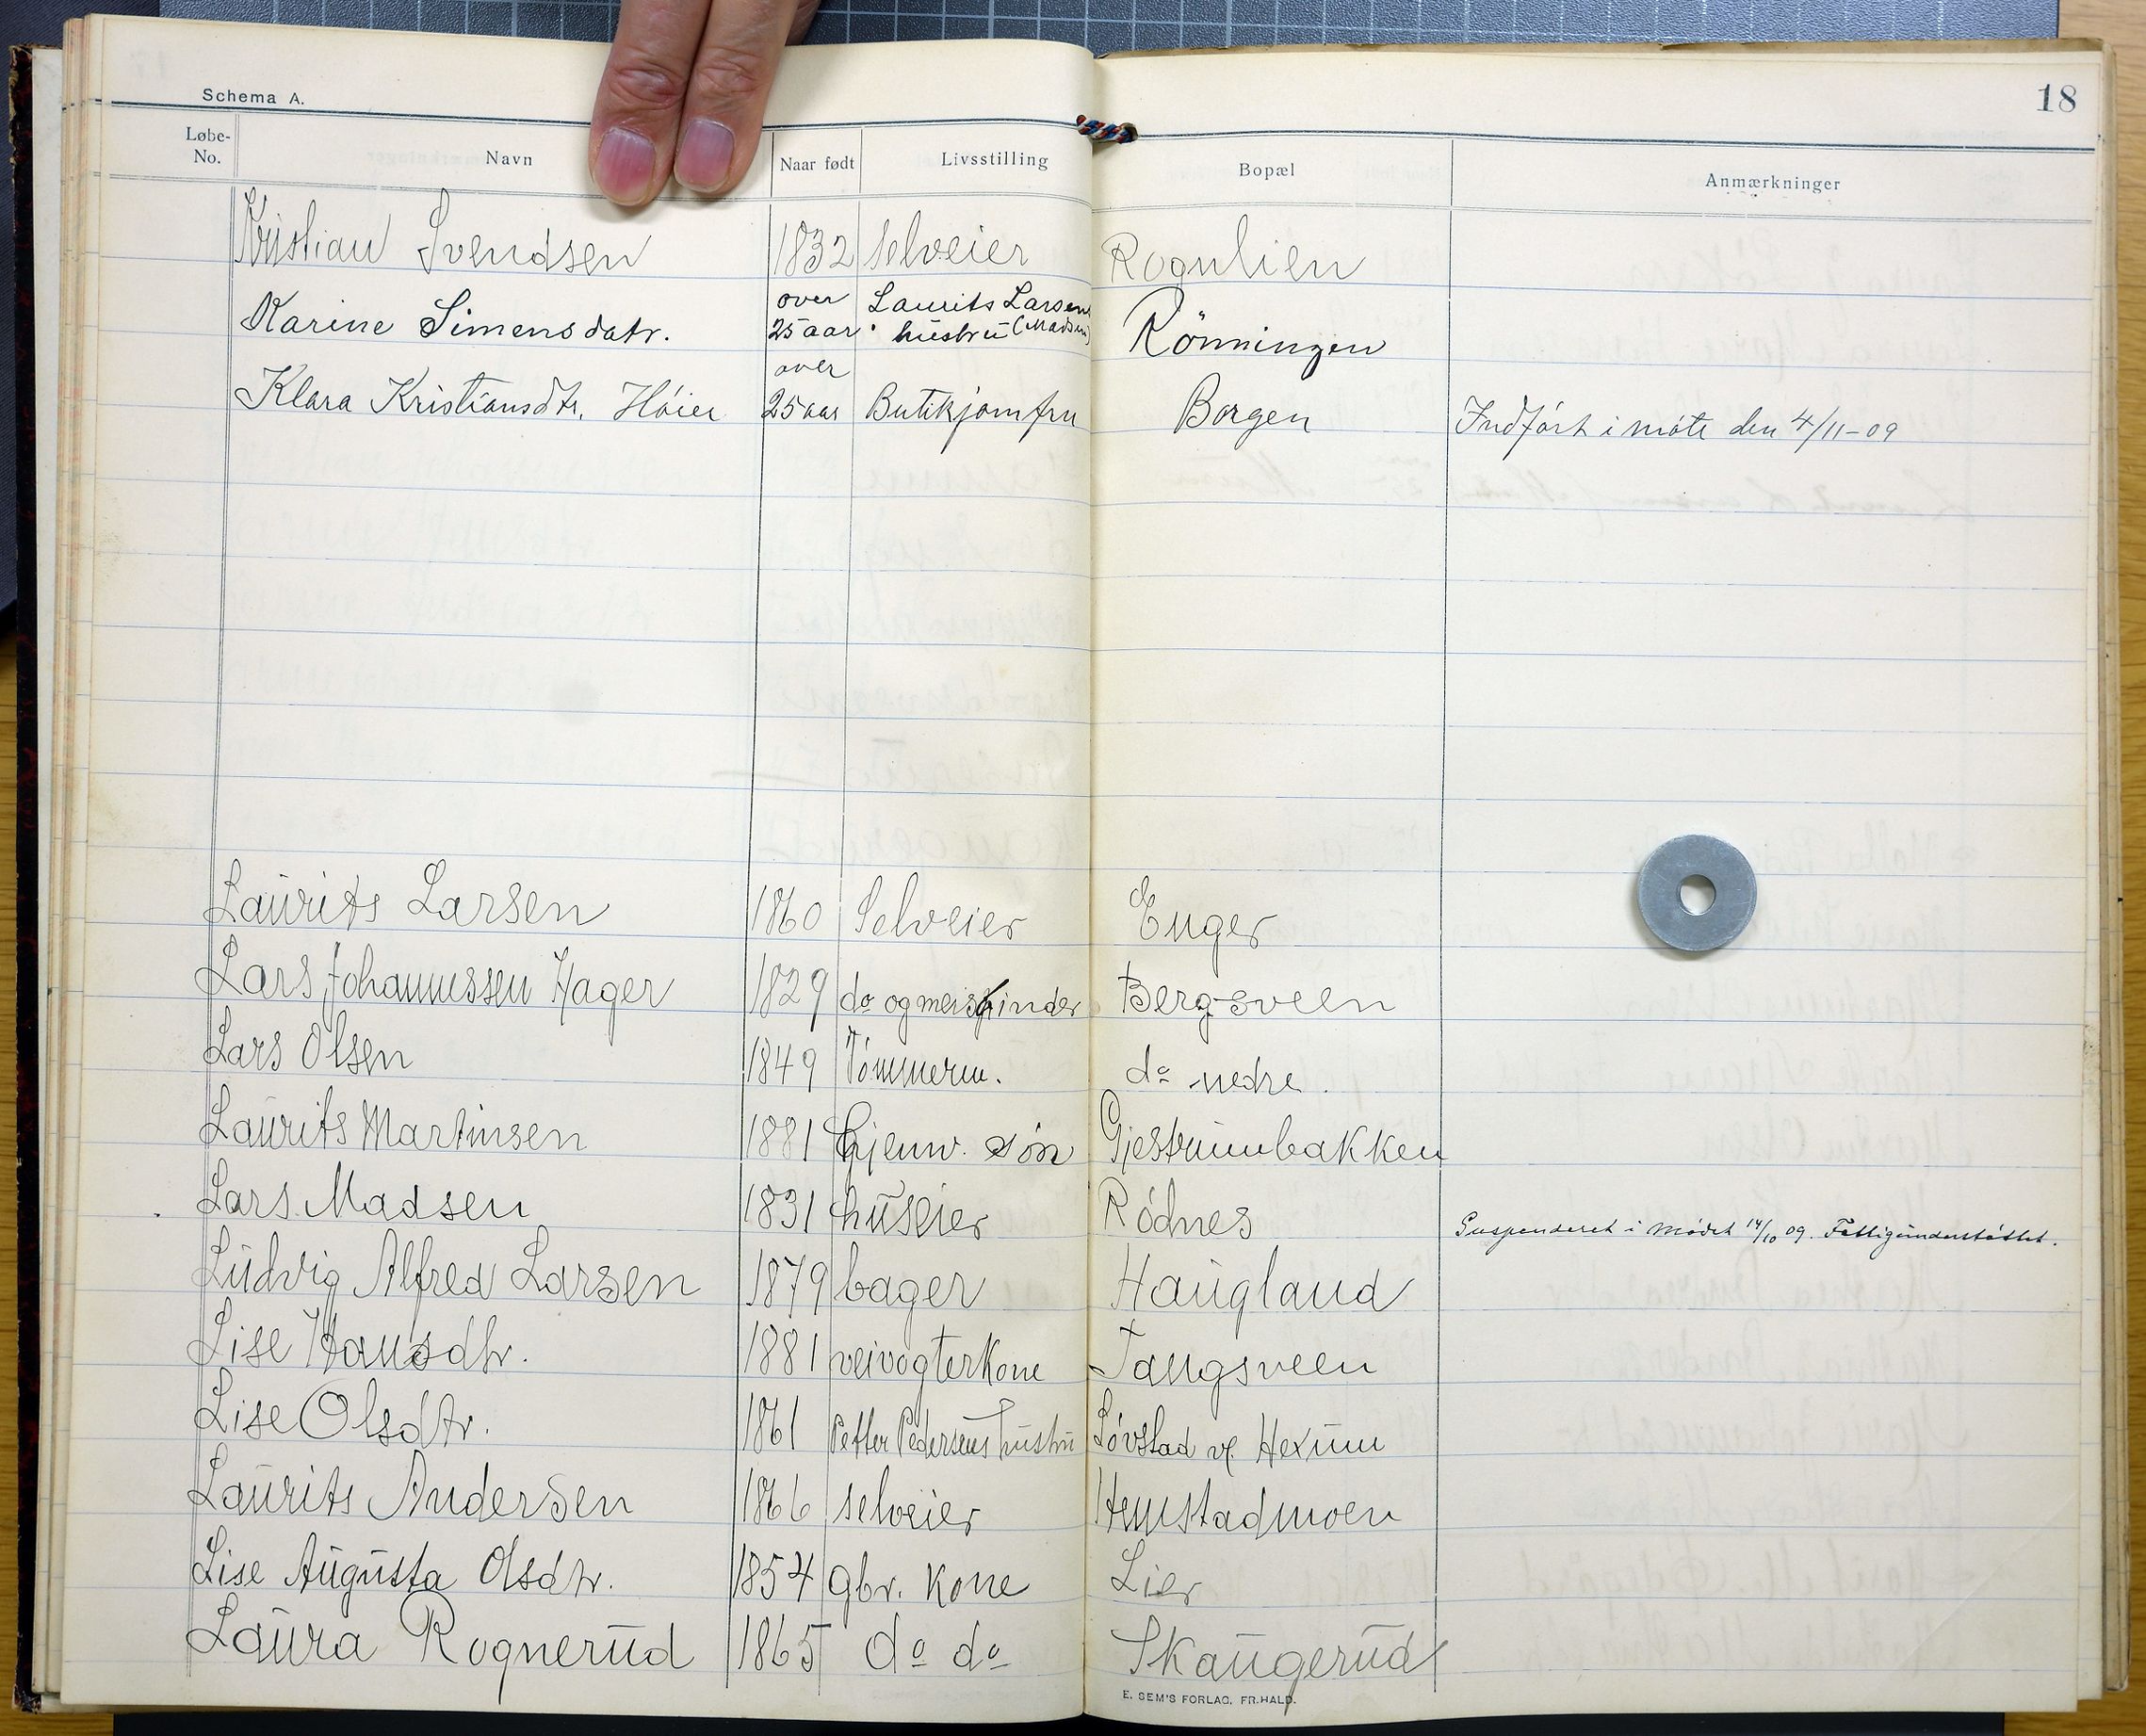 Schema A. 18
Løbe-No. Navn Naar født Livsstilling Bopæl Anmærkninger
Kristian Svendsen 1832 selveier Rognlien
Karine Simensdatr. over 25 aar Laurits Larsens hustru (Madsen) Rønningen
Klara Kristiansdtr. Høier over 25 aar Butikjomfru Borgen Indført i møte den 4/11-09
Laurits Larsen 1860 Selveier Enger
Lars Johannessen Hager 1829 do og meieribinder Bergsveen
Lars Olsen 1849 Tømmerm. do nedre.
Laurits Martinsen 1881 hjemv. søn Gjestrumbakken
Lars Madsen 1831 huseier Rødnes Suspenderet i Mødet 14/10 09. Fattigunderstøttet.
Ludvig Alfred Larsen 1879 bager Haugland
Lise Hansdtr. 1881 veivogterkone Tangsveen
Lise Olsdtr. 1861 Petter Pedersens hustru Løvstad v/ Hexum
Laurits Andersen 1866 selveier Hemstadmoen
Lise Augusta Olsdtr. 1854 gbr. kone Lier
Laura Rognerud 1865 do do Skaugerud
E. SEM'S FORLAG, FR.HALD.